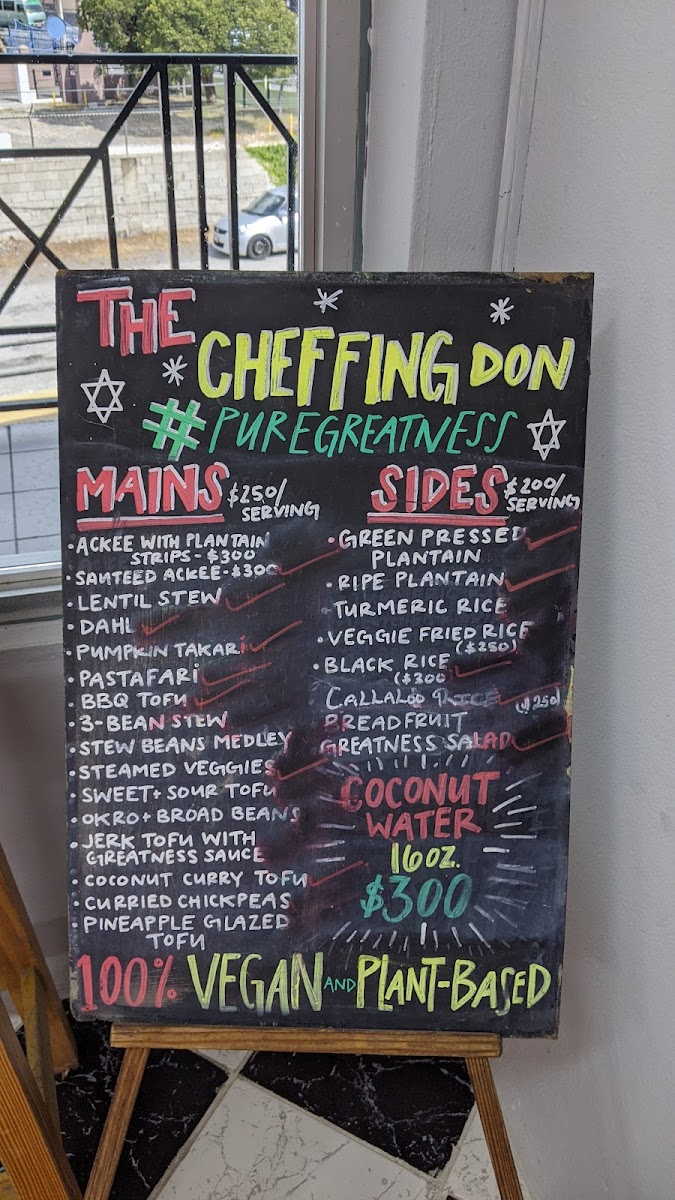 THE
CHEFFING DON
#PUREGREATNESS
MAINS $250/
SERVING
• ACKEE WITH PLANTAIN
STRIPS - $300
• SAUTEED ACKEE - $300
• LENTIL STEW
• DAHL
• PUMPKIN TAKARI
• PASTAFARI
• BBQ TOFU
• 3-BEAN STEW
• STEW BEANS MEDLEY
• STEAMED VEGGIES
• SWEET + SOUR TOFU
• OKRO + BROAD BEANS
• JERK TOFU WITH
GREATNESS SAUCE
• COCONUT CURRY TOFU
• CURRIED CHICKPEAS
• PINEAPPLE GLAZED
TOFU
SIDES $200/
SERVING
• GREEN PRESSED
PLANTAIN
• RIPE PLANTAIN
• TURMERIC RICE
• VEGGIE FRIED RICE
($250)
• BLACK RICE
($300
CALLALOO RICE
BREADFRUIT
GREATNESS SALAD
COCONUT
WATER
16 OZ.
$300
100% VEGAN AND PLANT-BASED